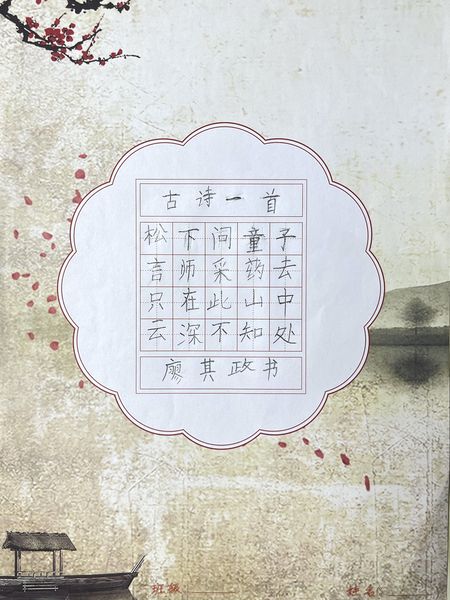 古诗一首
松下问童子
言师采药去
只在此山中
云深不知处
廖其政书
班级
姓名